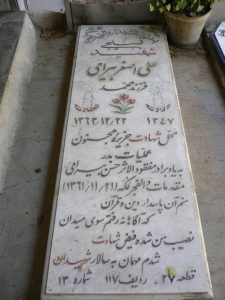 بسیجی
شهید
علی اصغر بیرامی
فرزند محمد
ولادت شهادت
۱۳۴۷ ۱۳۶۳/۱۲/۲۲
محل شهادت جزیره مجنون
عملیات بدر
به یاد برادر مفقودالاثر حسن بیرامی
مقدمات والفجر فکه (۱۳۶۱/۱۱/۲۱)
منم آن پاسدار دین و قرآن
که آگاهانه رفتم سوی میدان
نصیب من شده فیض شهادت
شدم مهمان به سالار شهیدان
قطعه ۲۷ ردیف ۱۱۷ شماره ۱۳